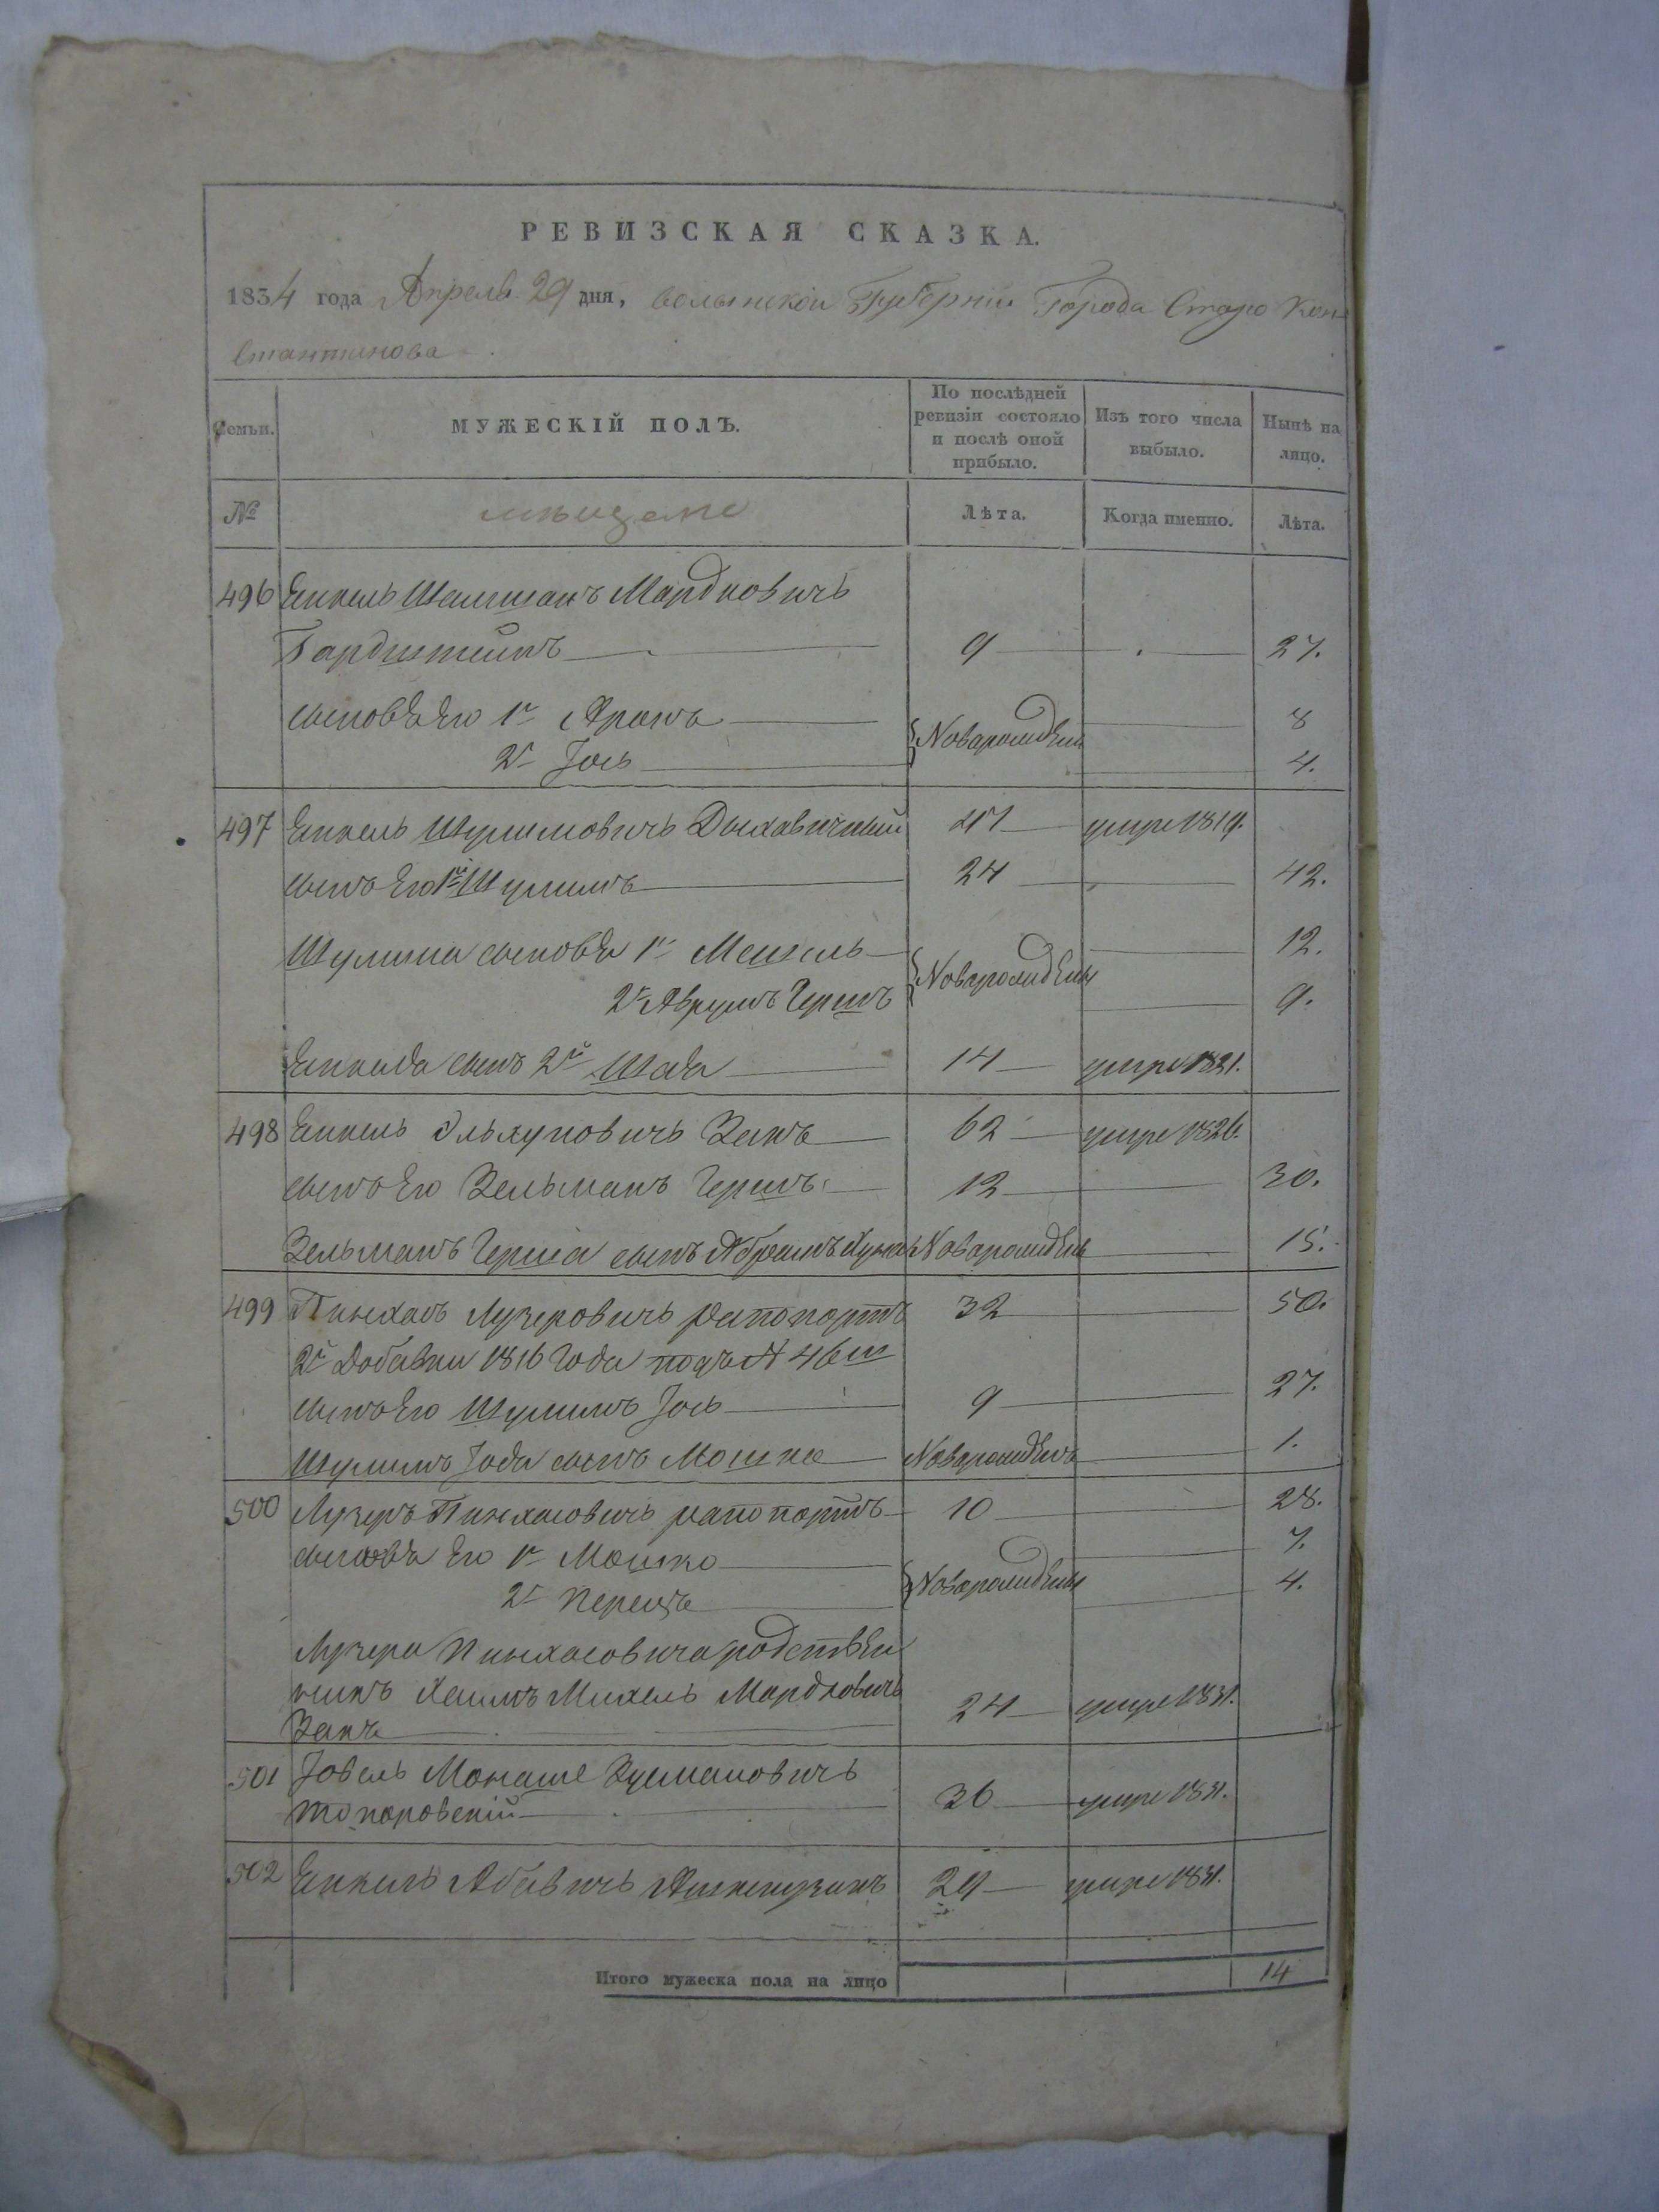 РЕВИЗСКАЯ СКАЗКА.
1834 года Апреля 29 дня, волынской Губернии Города Старо Кон-
стантинова
Семьи. МУЖЕСКІЙ ПОЛЪ. По послѣдней ревизіи состояло и послѣ оной прибыло. Изъ того числа выбыло. Нынѣ на лицо.
№ мѣщане Лѣта. Когда именно. Лѣта.
496 Янкель Шлиоманъ Мардковичь
Гардштейнъ 9 27.
сыновЪя Его 1й Аронъ Новарожденны 8
2й Іось 4.
497 Янкель Шулимовичь 47 умре 1819.
сынъ Его 1й Шулимъ 24 42.
Шулима сыновЪя 1й Мешель Новорожденны 12.
2й Аврумъ Гершъ 9.
Янкеля сынъ 2й 14 умре 1821.
498 Янкель Эльяуковичь Закъ 62 умре 1826.
сынъ Его Зельманъ Гершъ 12 30.
Зельманъ Герша сынъ Абрамъ Новарожденъ 15.
499 Пинхасъ Лузеровичь рапопортъ 32 50.
2й Добавки 1816 Года подъ № 46ш
сынъ Его Шулимъ Іось 9 27.
Шулимъ Іося сынъ Мошко Новарожденъ 1.
500 Лузеръ Пинхасовичь рапопортъ 10 28.
сыновЪя Его 1й Мошко Новорожденны 7.
2й Перецъ 4.
Лузера Пинхасовича родствен
никъ Хаимъ Михель Мардковичь 24 умре 1831.
Закъ
501 Іовель Монаше Зусмановичь
топоровскій 36 умре 1831.
502 Янкель Абавичь 29 умре 1831.
Итого мужеска пола на лицо 14